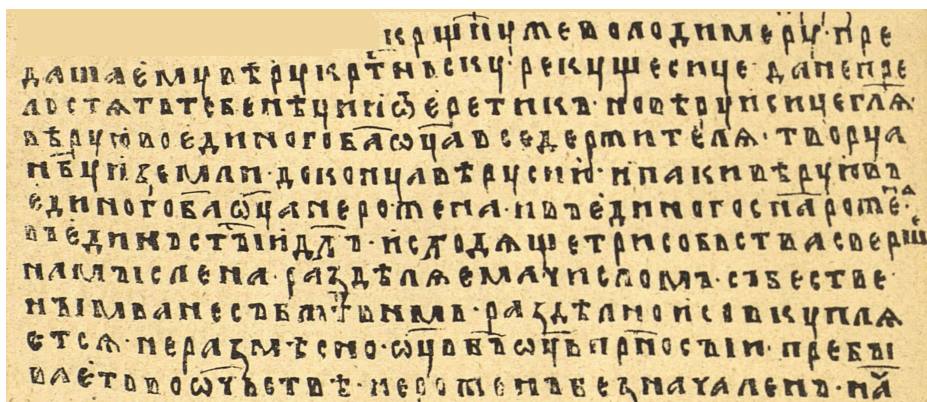 крщ҃ну же володимеру· пре
даша ему вѣру крт҃ьньску· рекуще сице· да не пре
лостять тебе нѣции ѿ еретикъ· но вѣруи сице гл҃я·
вѣрую во единого ба҃ ѡц҃а вседержителя· творца
нб҃у и земли· до конца вѣру сию· и паки вѣрую въ
единого ба҃ ѡц҃а нерожена· и въ единого сн҃а рожена·
въ единъ ст҃ъıи дх҃ъ· исходящ· е три собьства сверш
на мъıслена· раздѣляема числомъ· събестве
нъıмь а не сб҃жтвмь· раздѣлно и совкупля
ется· не размѣсно· ѡц҃ь въ ѡц҃ь прн҃осъıи· пребъı
ваеть во ѡч҃ьствѣ· нероженъ безначаленъ· на҃